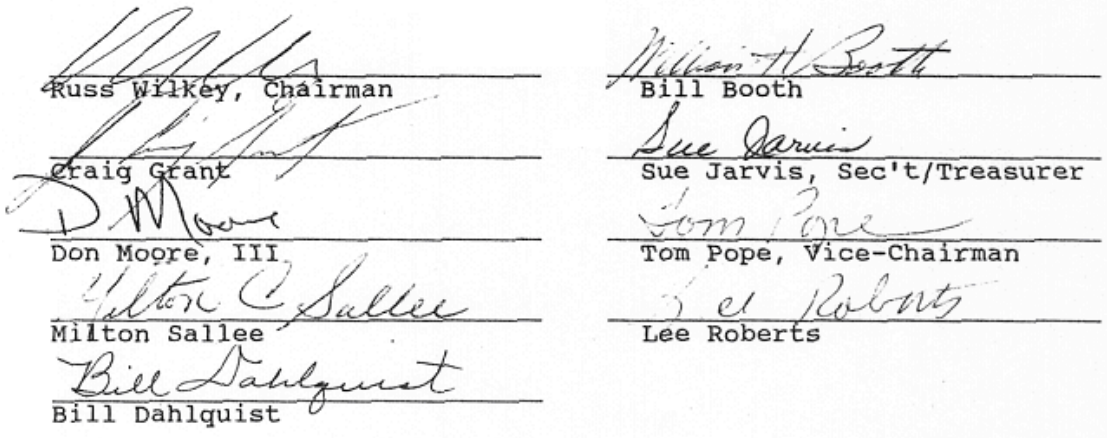 Russ Wilkey, Chairman
Craig Grant
D Moore
Don Moore, III
Milton C Sallee
Milton Sallee
Bill Dahlquist
Bill Dahlquist
William H Booth
Bill Booth
Sue Jarvis
Sue Jarvis, Sec't/Treasurer
Tom Pope
Tom Pope, Vice-Chairman
Lee Roberts
Lee Roberts